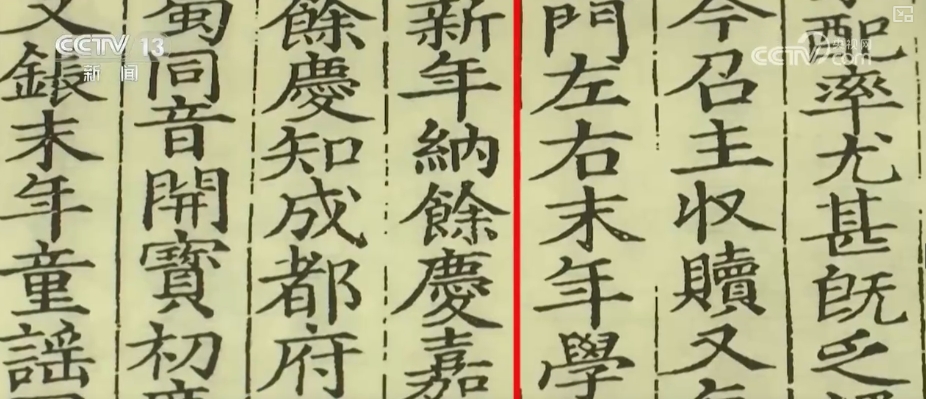 配率尤甚既乏
今召主收贖又
門左右末年學
新年納餘慶嘉
餘慶知成都府
蜀同音開寶初
文銀末年童謠
CCTV 13
新闻
央视网
CCTV.com